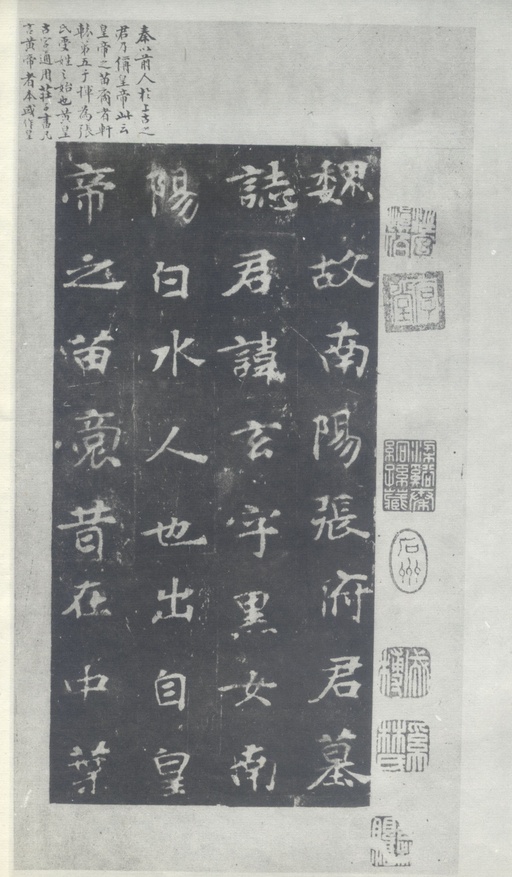 秦以前人於上古之
君乃偁皇帝此云
皇帝之苗裔者軒
轅弟五子揮為張
氏受姓之始也黃皇
古字通用莊子書凡
言黃帝者本或作皇
魏故南陽張府君墓
誌君諱玄字黑女南
陽白水人也出自皇
帝之苗裔昔在中葉
石州